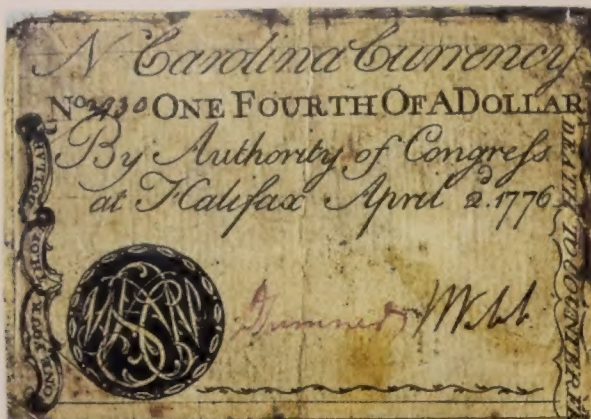 N Carolina Currency
No 2930 ONE FOURTH OF A DOLLAR
By Authority of Congress
at Halifax April 2d. 1776
ONE FOURTH OF
DOLLAR
DEATH TO COUNTERFEIT
Webb